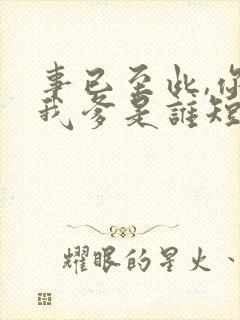 事已至此,你
我爹是誰短
耀眼的星火、